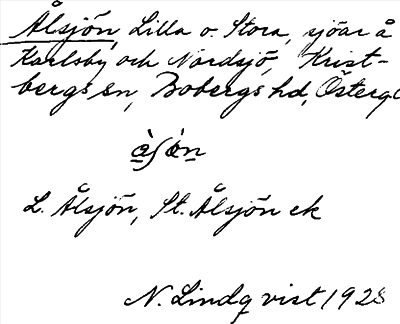 Ålsjön, Lilla o. Stora, sjöar å
Karlsby och Nordsjö, Krist-
bergs sn, Bobergs hd, Östergl
L. Ålsjön, St. Ålsjön ek
N. Lindqvist 1928